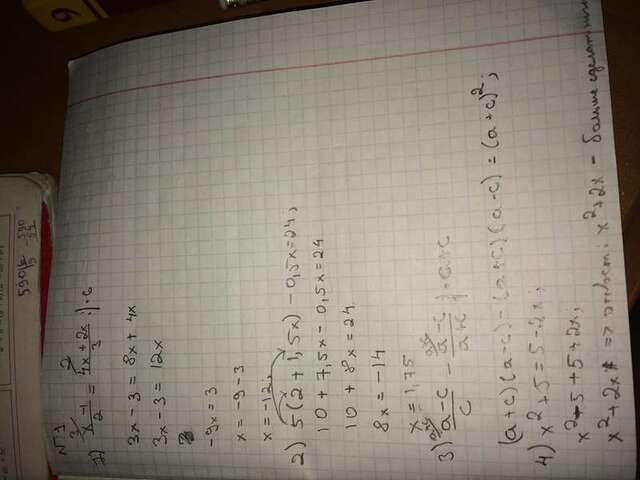 N 1
1) x-1/2 = 4x+2x/3 |·6
3x-3=8x+4x
3x-3=12x
-9x=3
x=-9-3
x=-12;
2) 5(2+1,5x)-0,5x=24;
10+7,5x-0,5x=24
10+8x=24
8x=-14
x=1,75
3) a-c/c - a-c/a+c |·a+c
(a+c)(a-c)-(a+c)(a-c)=(a+c)²;
4) x²+5=5-2x;
x²+5+5+2x;
x²+2x => ответ: x²+2x - больше сделать
590